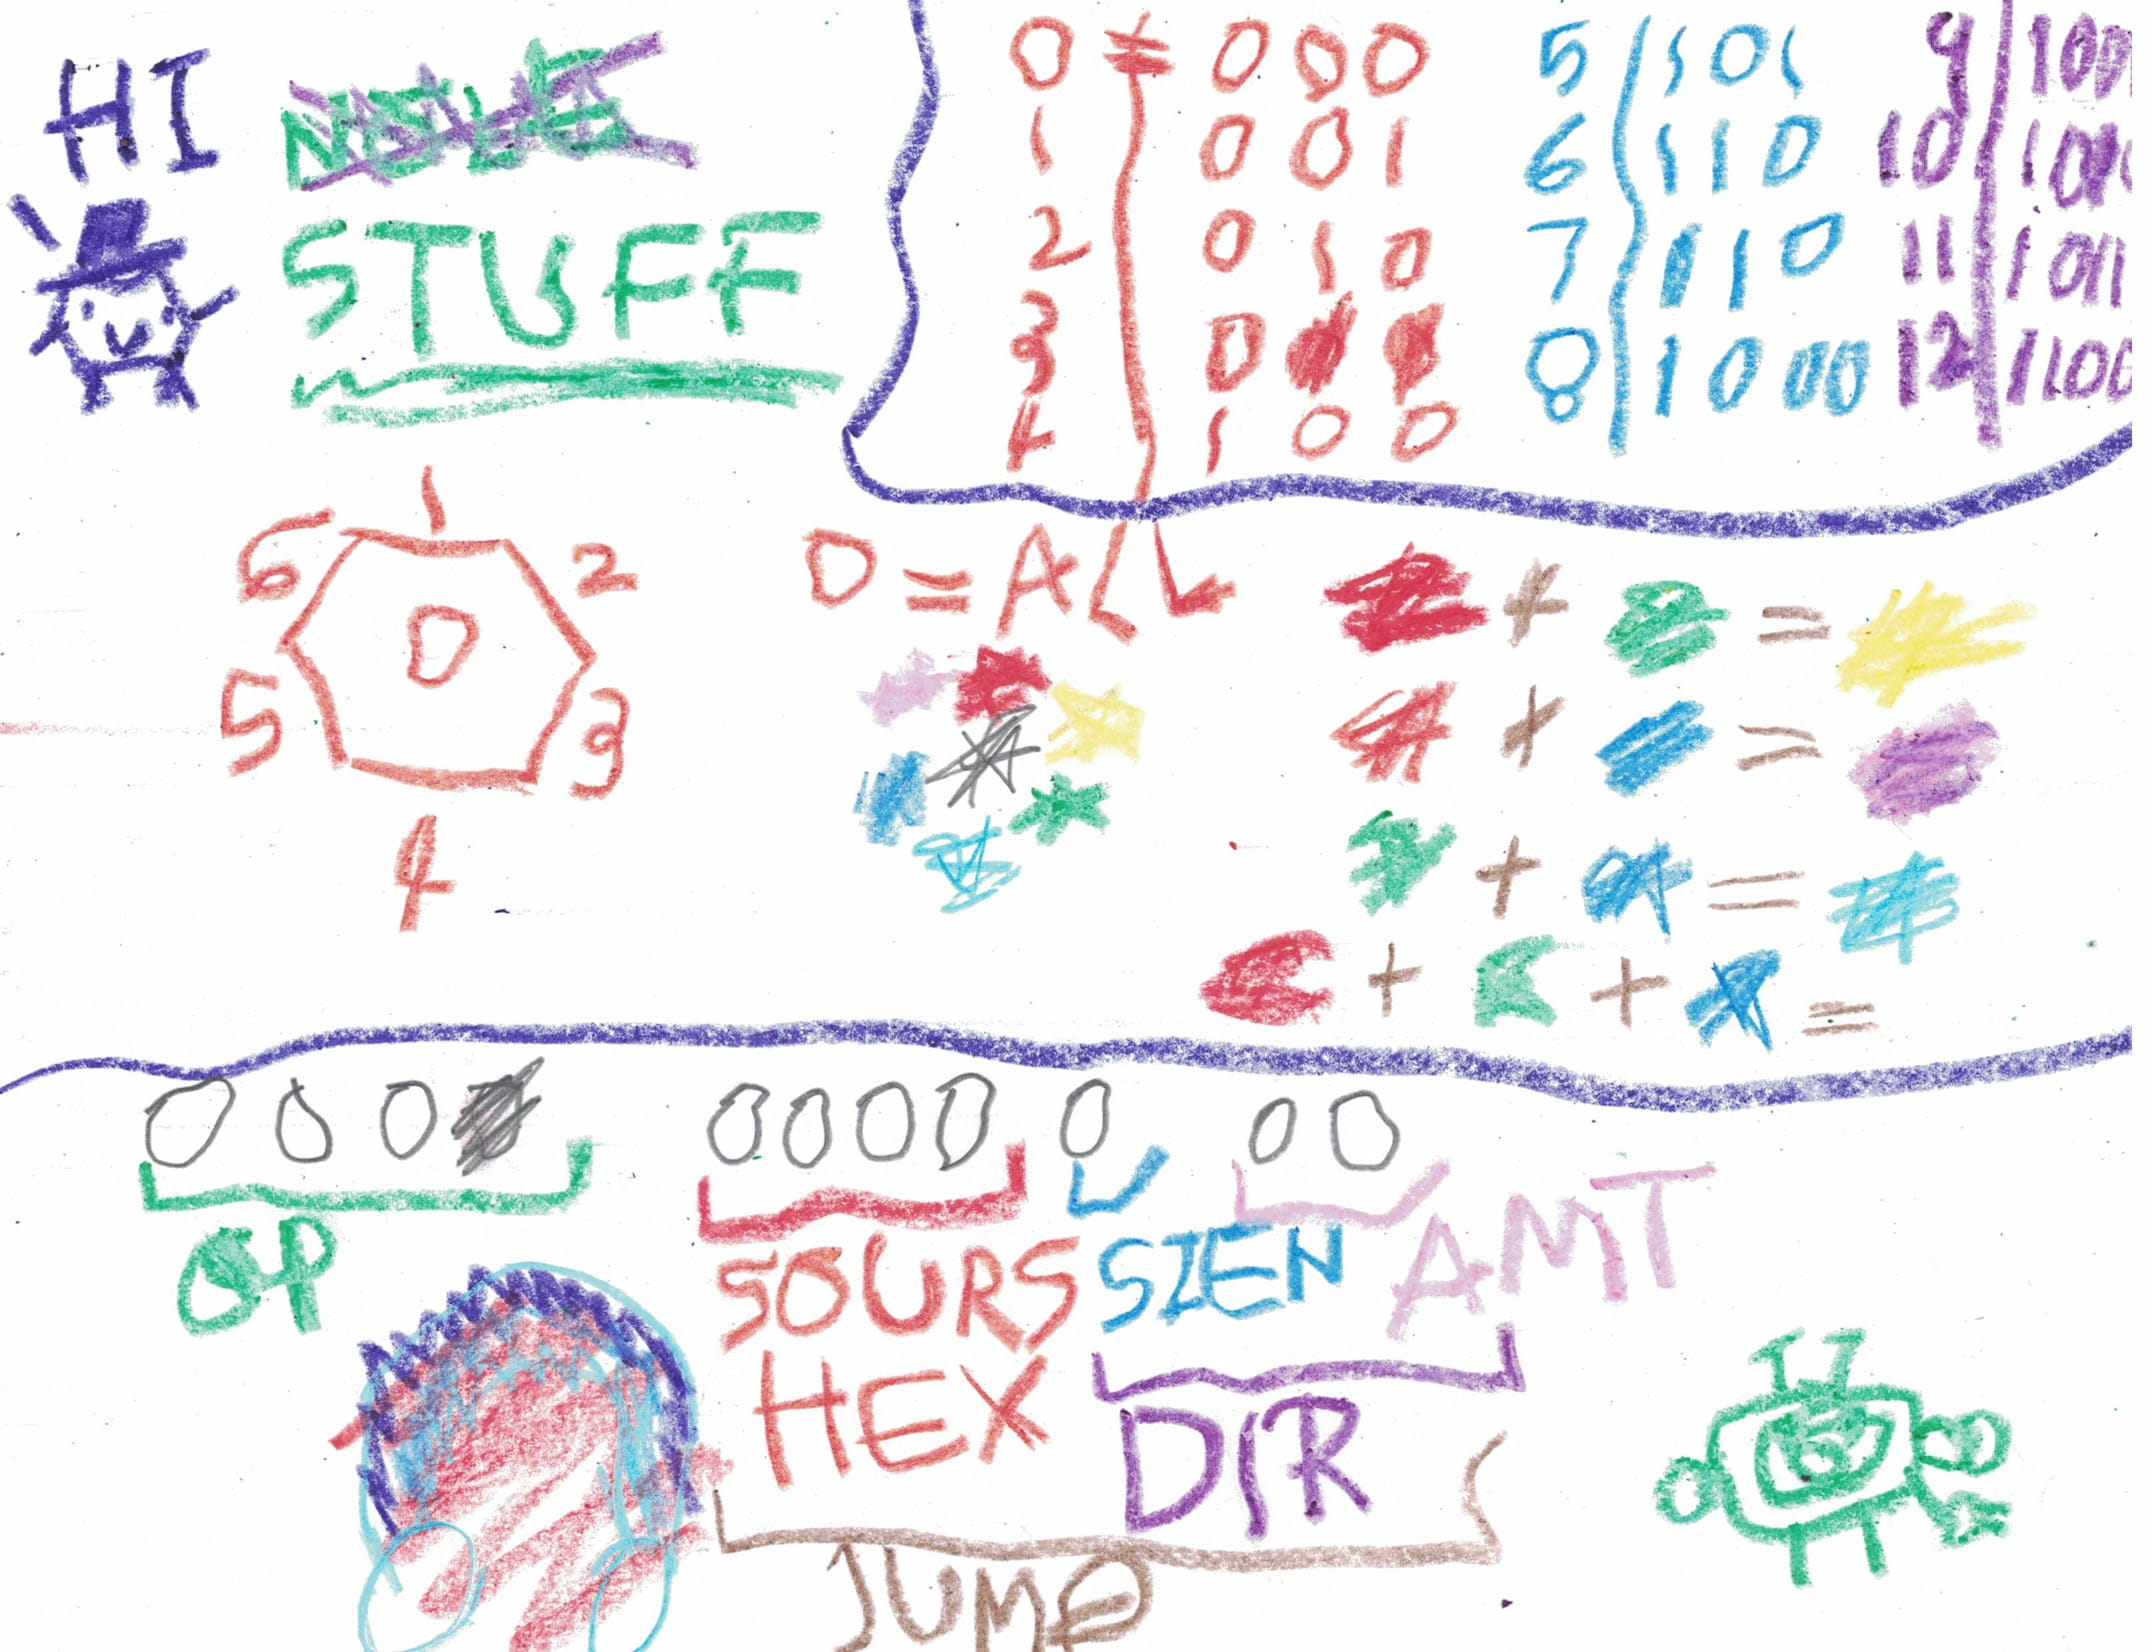 HI
STUFF
0 ≠ 0 0 0
1 0 0 1
2 0 1 0
3 0
4 1 0 0
5 1 0 1
6 1 1 0
7 1 1 0
8 1 0 0 0
9 1001
10 1010
11 1011
12 1100
1
6 2
0
5 3
4
0 = ALL
+ =
+ =
+ =
+ + =
OP
SOURS SIEN AMT
HEX
DIR
JUMP